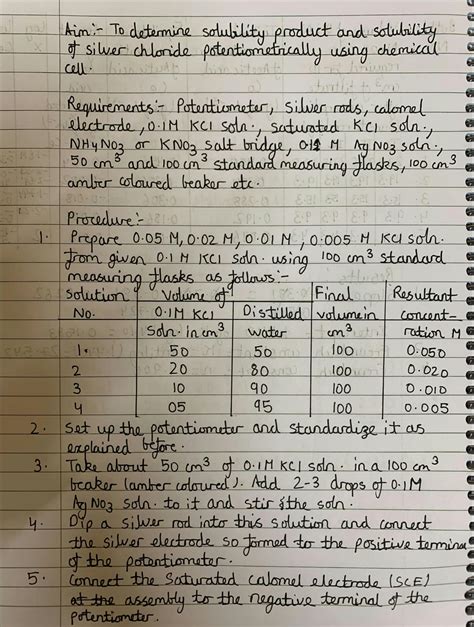 Aim:- To determine solubility product and solubility
of silver chloride potentiometrically using chemical
cell.
Requirements:- Potentiometer, silver rods, calomel
electrode, 0.1M KCl soln., saturated KCl soln.,
NH4NO3 or KNO3 salt bridge, 0.1 M AgNO3 soln.,
50 cm³ and 100 cm³ standard measuring flasks, 100 cm³
amber coloured beaker etc.
Procedure:-
1. Prepare 0.05 M, 0.02 M, 0.01 M, 0.005 M KCl soln.
from given 0.1 M KCl soln. using 100 cm³ standard
measuring flasks as follows:-
Solution Volume of Final Resultant
No. 0.1M KCl Distilled volume in concent-
soln. in cm³ water cm³ ration M
1. 50 50 100 0.050
2 20 80 100 0.020
3 10 90 100 0.010
4 05 95 100 0.005
2. Set up the potentiometer and standardize it as
explained before.
3. Take about 50 cm³ of 0.1M KCl soln. in a 100 cm³
beaker (amber coloured). Add 2-3 drops of 0.1M
AgNO3 soln. to it and stir the soln.
4. Dip a silver rod into this solution and connect
the silver electrode so formed to the positive terminal
of the potentiometer.
5. Connect the Saturated calomel electrode (SCE)
at the assembly to the negative terminal of the
potentiometer.